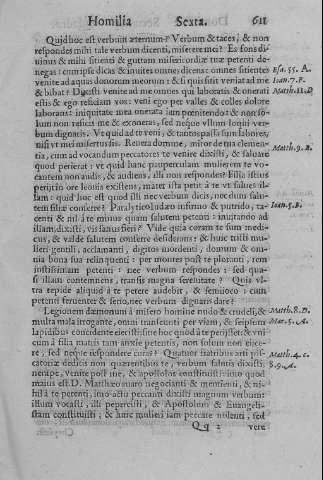 Homilia Sexta. 611
Quid hoc est verbum æternum? Verbum & taces; & non
respondes mihi tale verbum dicenti, miserere mei? Es fons di-
uinus & mihi sitienti & guttam misericordiæ tuæ petenti de-
negas: cum ipse dicas & inuites omnes dicens: omnes sitientes
venite ad aquas donorum meorum: & si quis sitit veniat ad me
& bibat? Dicesti venite ad me omnes qui laboratis & onerati
estis & ego reficiam vos: veni ego per valles & colles dolore
laborans: iniquitate mea onerata iam pœnitendo: & non so-
lum non reficis me & exoneras, sed neque vllum loqui ver-
bum dignaris. Vt quid ad te veni, & tantos passa sum labores,
nisi vt mei misertus sis. Reuera domine, miror de tua clemen-
tia, cum ad vocandum peccatores te venire dixisti, & saluare
quod perierat: vt quid hanc pauperculam mulierem te vo-
cantem non audis, & audiens, illi non respondes? Filia istius
perijt in ore leonis existens, mater ista petit à te vt salues il-
lam: quid hoc est quod illi nec verbum dicis, nec dum salu-
tem filiæ conferre? Paralytico Iudæo infirmo & putrido, ta-
centi & nil à te minus quam salutem petenti: inuitando ad
illam dixisti, vis sanus fieri? Vide quia coram te sum medi-
cus, & valde salutem conferre desiderans: & huic tristi mu-
lieri gentili, acclamanti, digitos mordenti, domum & om-
nia bona sua relinquenti: per montes post te ploranti, rem
iustissimam petenti: nec verbum respondes: sed qua-
si illam contemnens, transis magna serenitate? Quis vl-
tra tepide aliquid à te petere audebit, & semioco: cum
petenti feruenter & serio, nec verbum dignaris dare?
Legionem dæmonum à misero homine nudo & crudeli, &
multa mala irrogante, omni transeunti per viam, & seipsum
lapidibus concidente eiecisti sine hoc quod à te peteret: & vni-
cum à filia matris tam anxie petentis, non solum non eiice-
re, sed neque respondere curas? Quatuor fratribus arti pis-
catoriæ deditis non quærentibus te, verbum salutis dixisti,
nempe, venite post me, & apostolos constituisti: imo quod
maius est. D. Matthæo suaro negocianti & mentienti, & ni-
hil à te petenti, imo actu peccanti dixisti magnum verbum:
illum vocasti, illi pepercisti, & Apostolum & Euangeli-
stam constituisti; & huic mulieri iam peccare nolenti, sed
Qq 2 vere
Esa. 55. A.
Ioan. 7. F.
Matth. 11. D
Matth. 9. B.
Ioan. 5. B.
Matth. 8. D.
Mar. 5. A.
Matth. 4. c.
& 9. A.